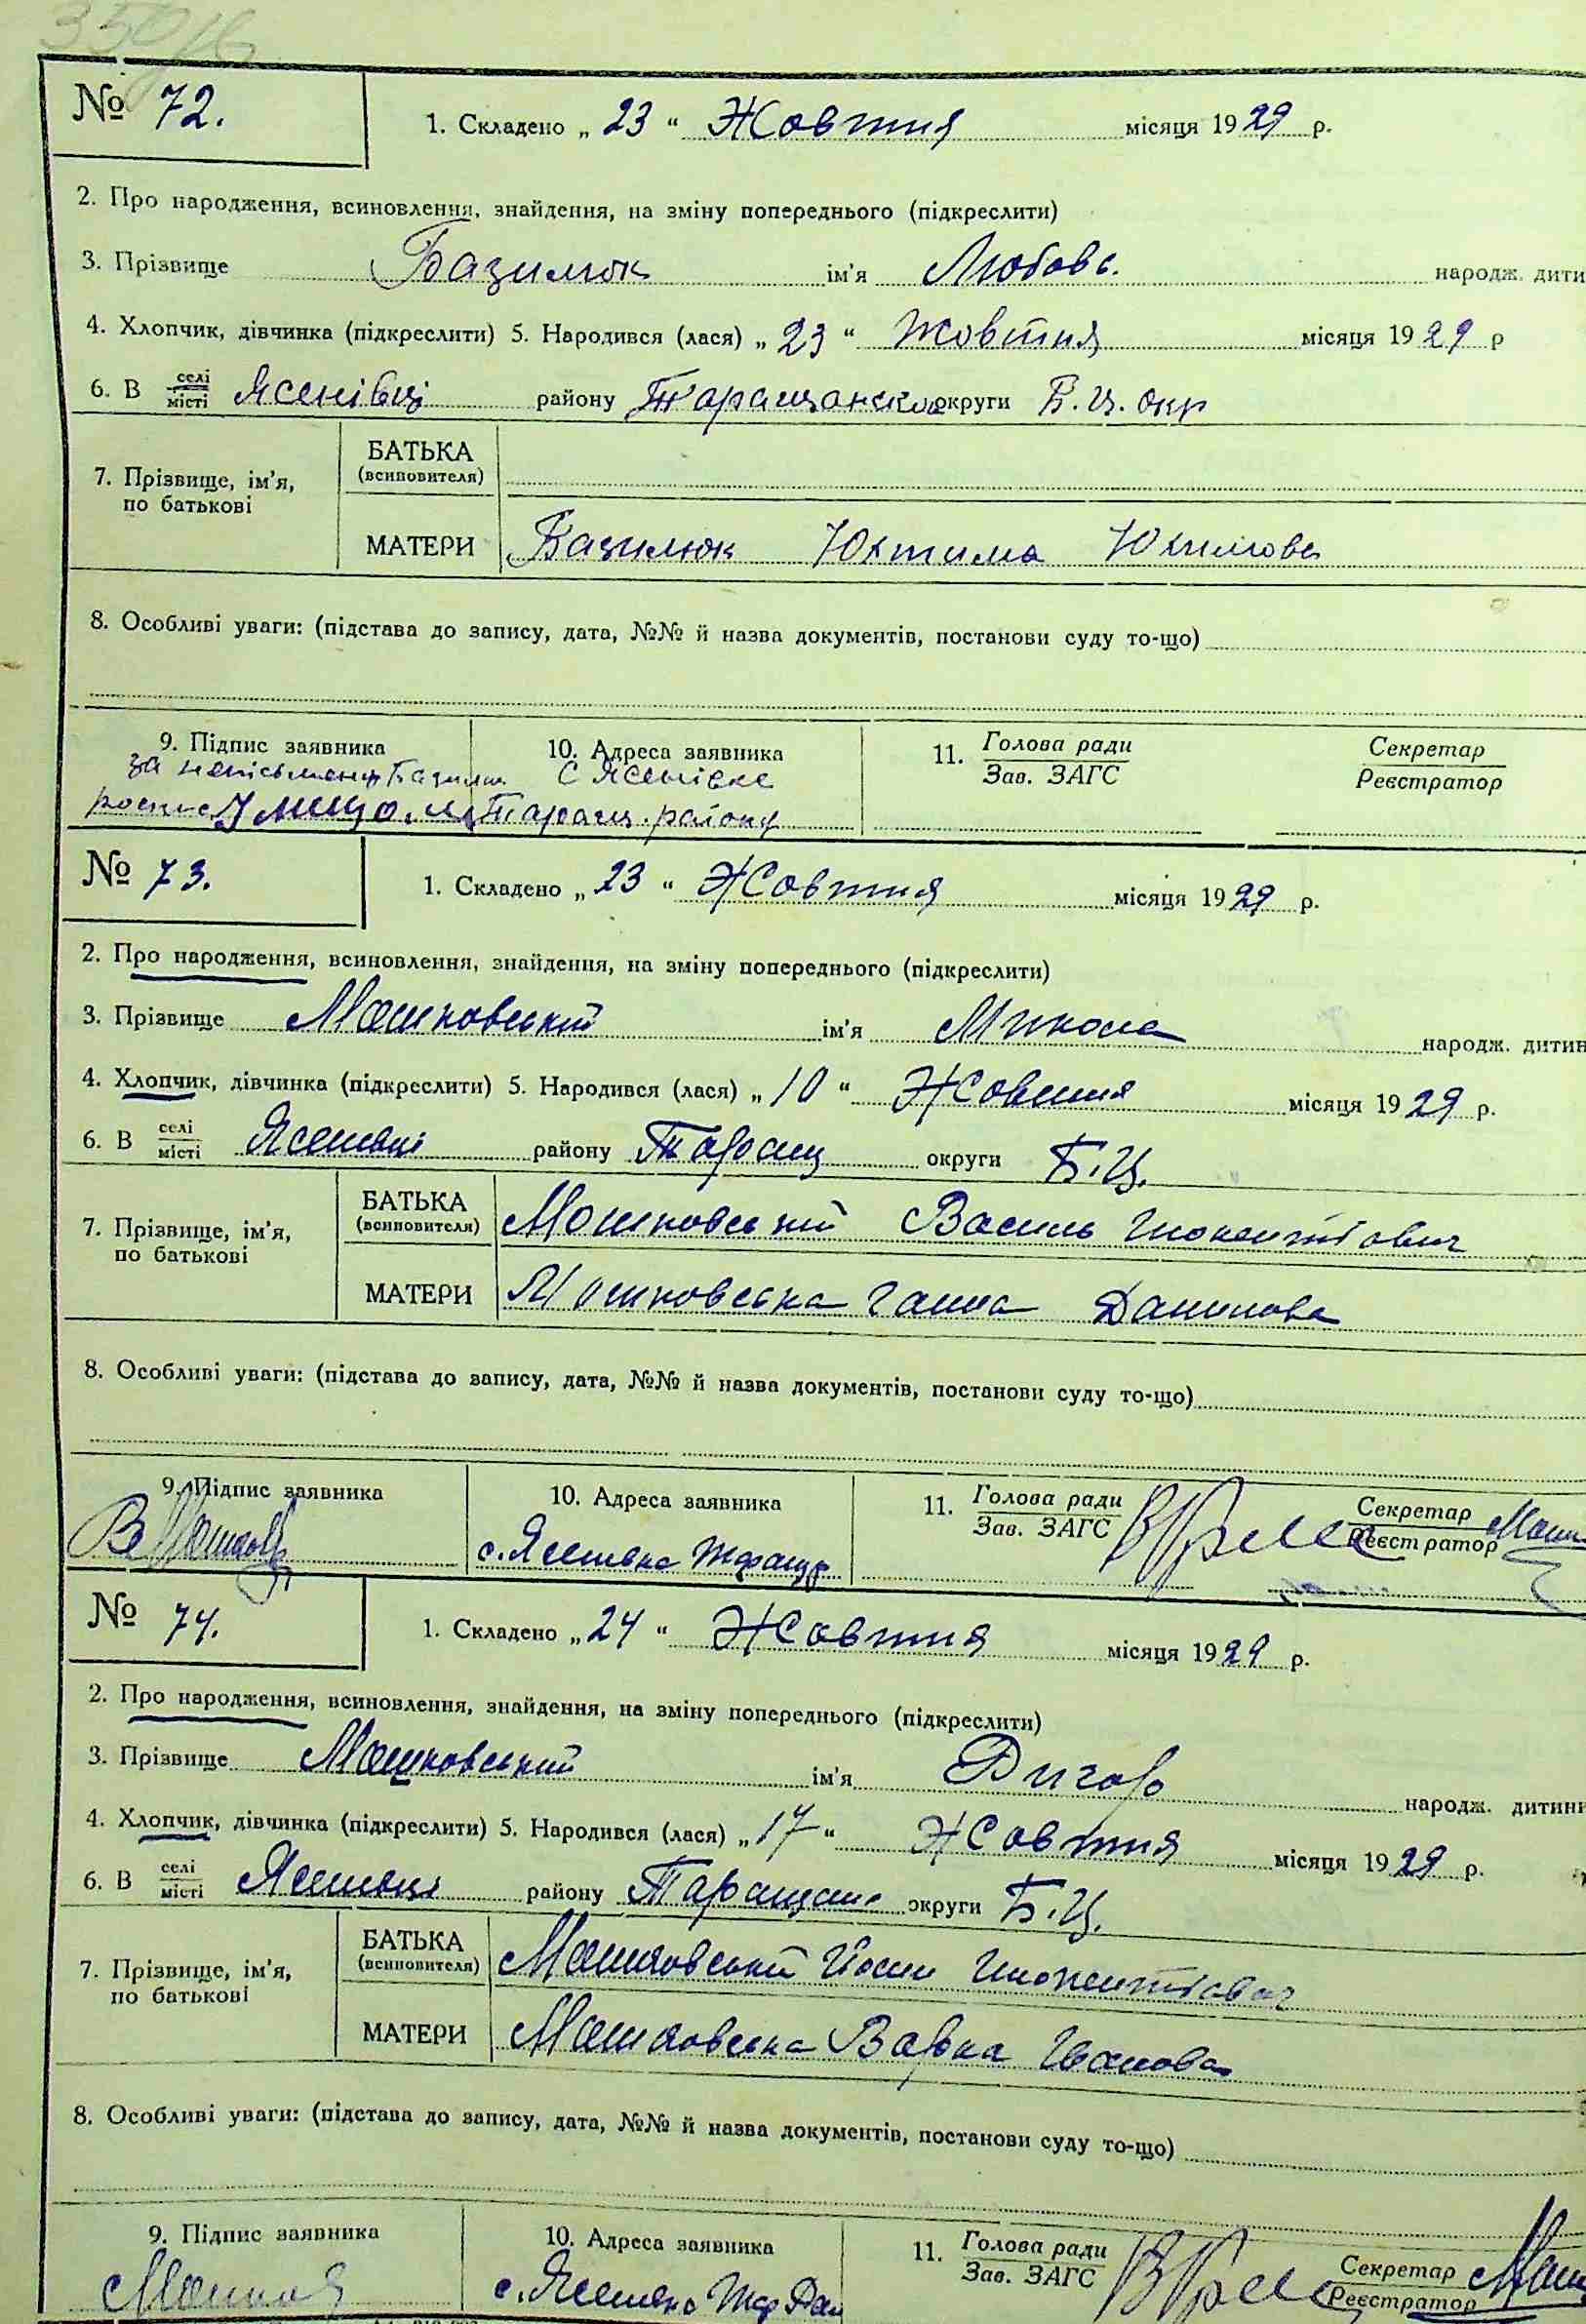 № 72.
1. Складено „ 23 “ Жовтня місяця 1929 р.
2. Про народження, всиновлення, знайдення, на зміну попереднього (підкреслити)
3. Прізвище Базилюк ім'я Любовь. народж. дити
4. Хлопчик, дівчинка (підкреслити) 5. Народився (лася) „ 23 “ Жовтня місяця 1929 р
6. В селі/місті Ясенівці району Таращанско округи Б. Ц. окр
7. Прізвище, ім'я, по батькові
БАТЬКА (всиновителя)
МАТЕРИ Базилюк Юхтима Юхимова
8. Особливі уваги: (підстава до запису, дата, №№ й назва документів, постанови суду то-що)
9. Підпис заявника 10. Адреса заявника 11. Голова ради / Зав. ЗАГС Секретар / Реєстратор
за С Ясенівке
Таращ. району
№ 73.
1. Складено „ 23 “ Жовтня місяця 1929 р.
2. Про народження, всиновлення, знайдення, на зміну попереднього (підкреслити)
3. Прізвище Машковський ім'я Микола народж. дитин
4. Хлопчик, дівчинка (підкреслити) 5. Народився (лася) „ 10 “ Жовтня місяця 1929 р.
6. В селі/місті Ясенівці району Таращ округи Б. Ц.
7. Прізвище, ім'я, по батькові
БАТЬКА (всиновителя) Машковський Василь Інокентієвич
МАТЕРИ Машковська Ганна Данилова
8. Особливі уваги: (підстава до запису, дата, №№ й назва документів, постанови суду то-що)
9. Підпис заявника 10. Адреса заявника 11. Голова ради / Зав. ЗАГС Секретар / Реєстратор
с. Ясенівка
№ 74.
1. Складено „ 24 “ Жовтня місяця 1929 р.
2. Про народження, всиновлення, знайдення, на зміну попереднього (підкреслити)
3. Прізвище Машковський ім'я народж. дитини
4. Хлопчик, дівчинка (підкреслити) 5. Народився (лася) „ 17 “ Жовтня місяця 1929 р.
6. В селі/місті Ясенівці району Таращан округи Б. Ц.
7. Прізвище, ім'я, по батькові
БАТЬКА (всиновителя) Машковський Йосип Інокентієвич
МАТЕРИ Машковська Варка Іванова
8. Особливі уваги: (підстава до запису, дата, №№ й назва документів, постанови суду то-що)
9. Підпис заявника 10. Адреса заявника 11. Голова ради / Зав. ЗАГС Секретар / Реєстратор
с. Ясенівка